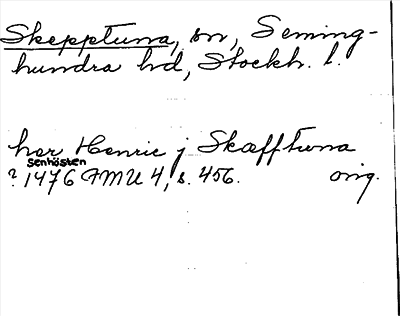 Skepptuna, sn, Seming-
hundra hd, Stockh. l.
her Henric j Skæfftuna
Senhösten
? 1476 FMU 4, s. 456. orig.